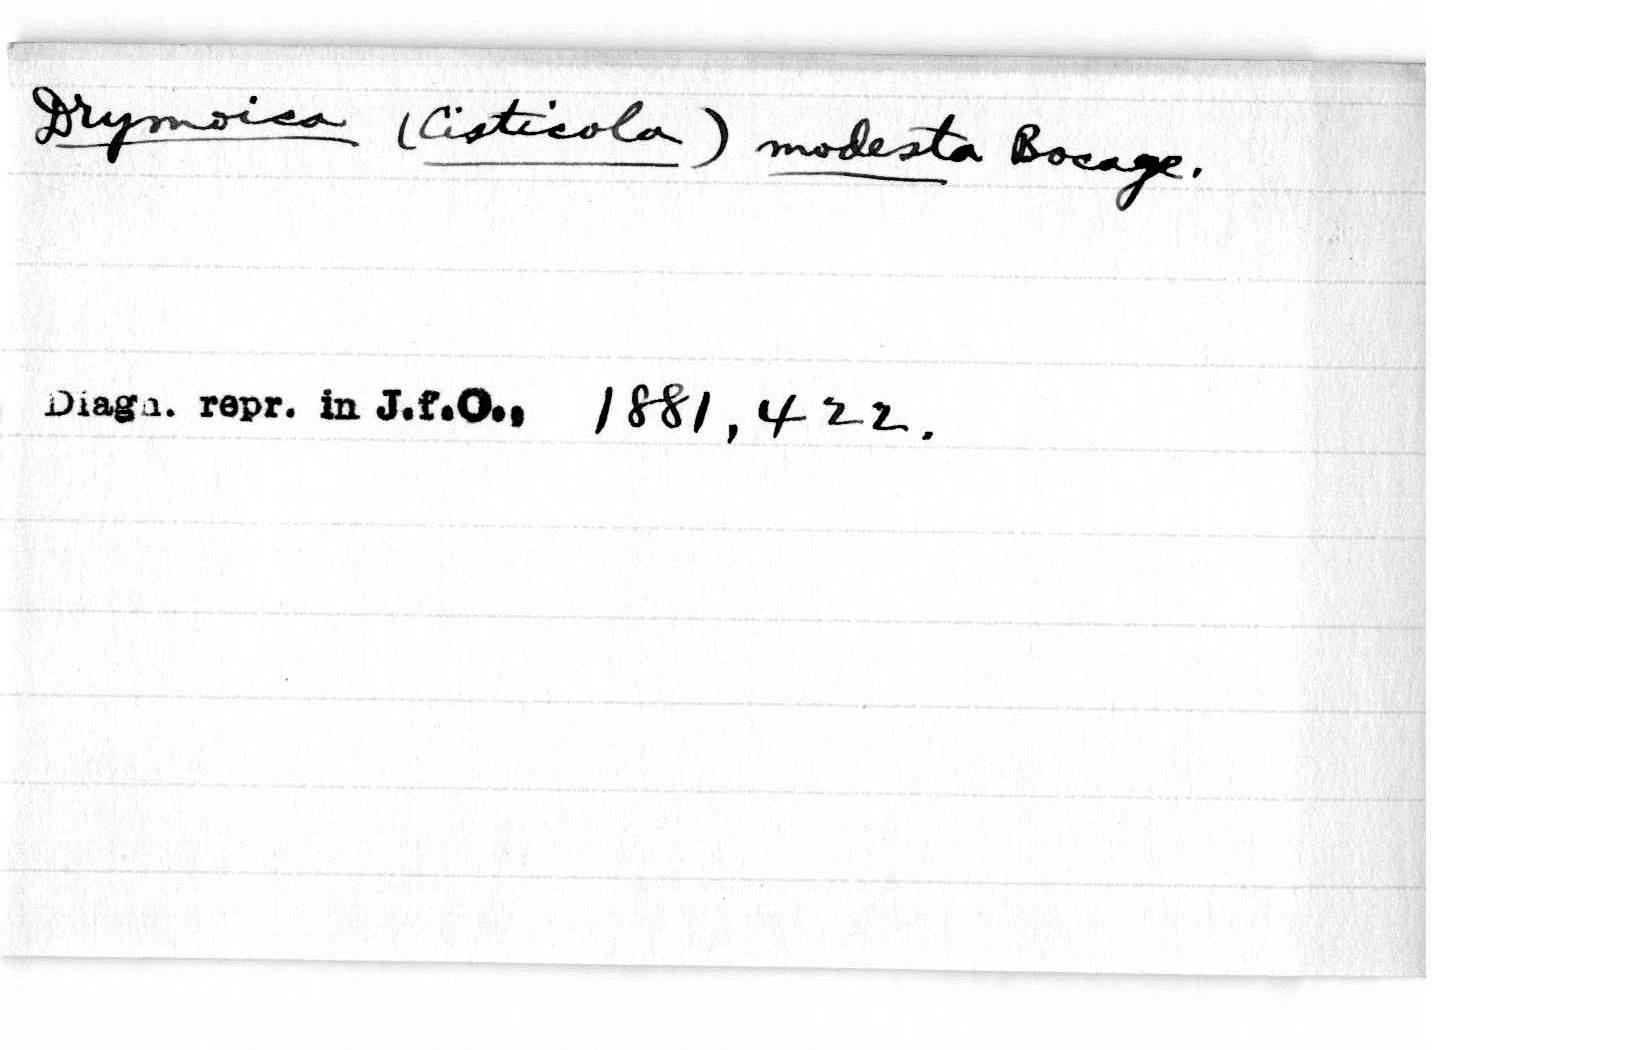 Drymoica (Cisticola) modesta Bocage.
Diagn. repr. in J.f.O., 1881, 422.